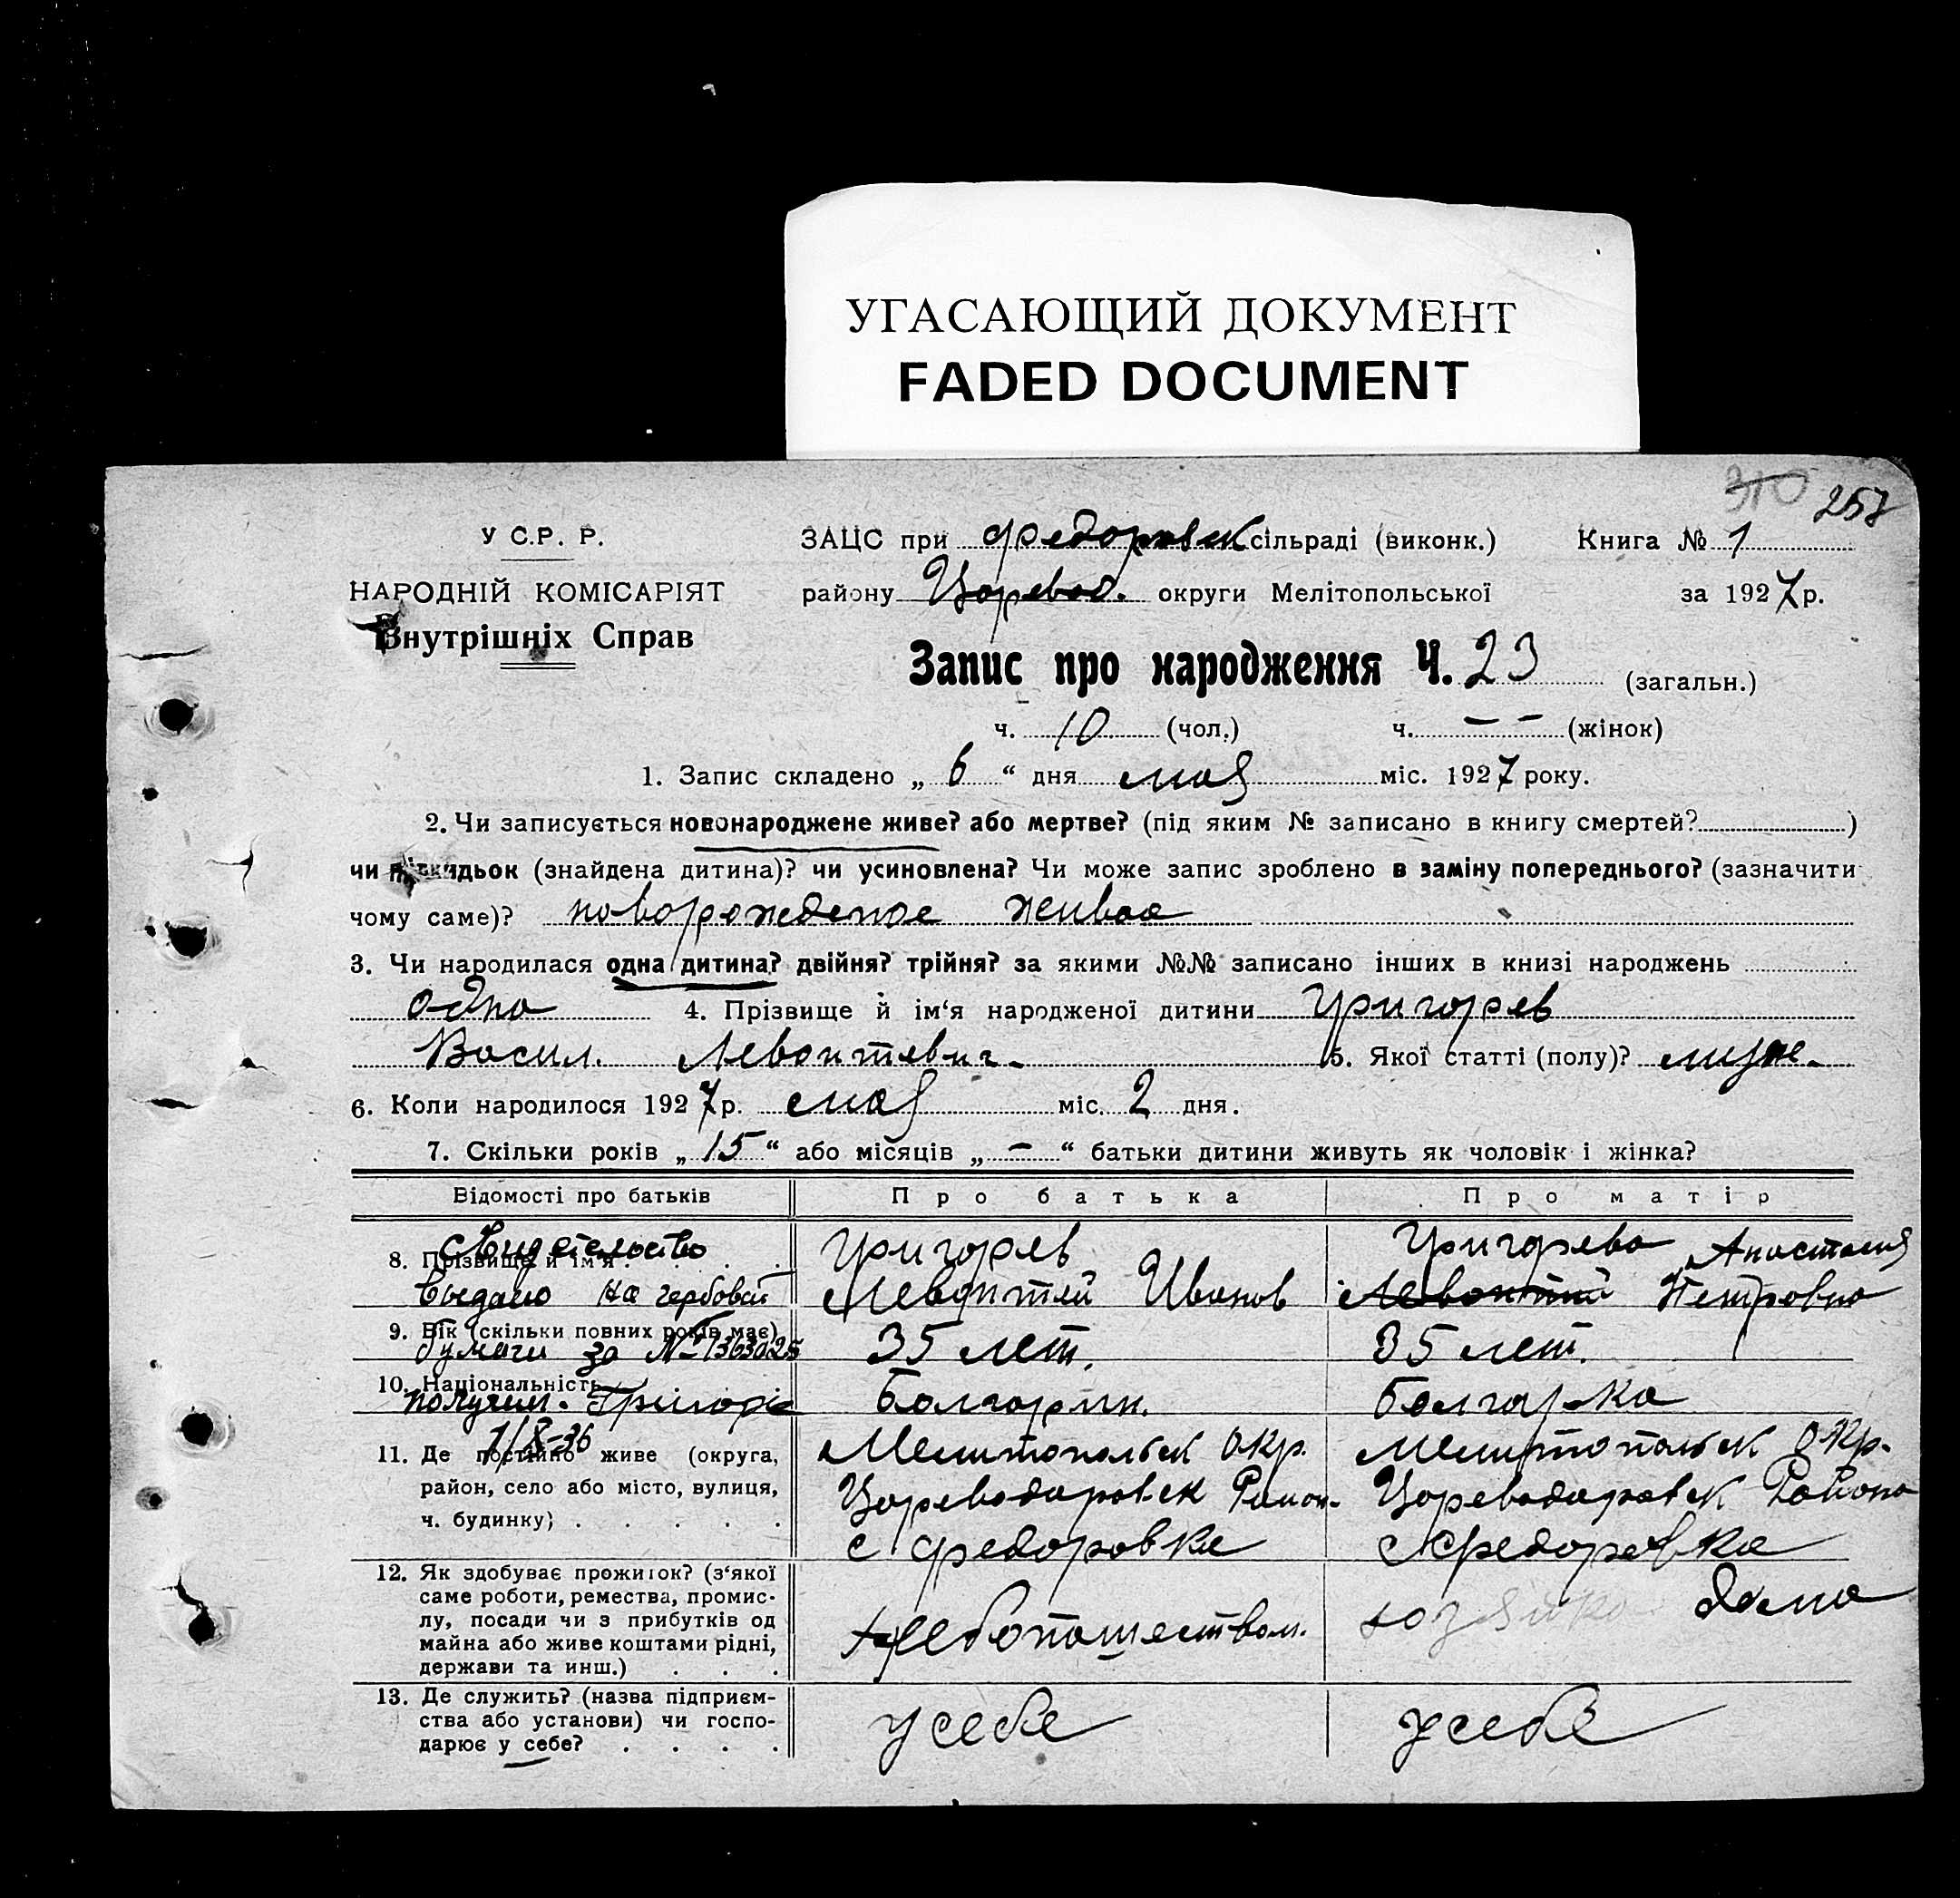 УГАСАЮЩИЙ ДОКУМЕНТ
FADED DOCUMENT
310 257
У С.Р. Р.
НАРОДНІЙ КОМІСАРІЯТ
Внутрішніх Справ
ЗАЦС при Федоровск сільраді (виконк.) Книга № 1
району Царевод. округи Мелітопольської за 1927 р.
Запис про народження Ч. 23 (загальн.)
ч. 10 (чол.) ч. — — (жінок)
1. Запис складено „ 6 “ дня мая міс. 1927 року.
2. Чи записується новонароджене живе? або мертве? (під яким № записано в книгу смертей? )
чи підкидьок (знайдена дитина)? чи усиновлена? Чи може запис зроблено в заміну попереднього? (зазначити
чому саме)? новорожденое живое
3. Чи народилася одна дитина? двійня? трійня? за якими №№ записано інших в книзі народжень
одно 4. Прізвище й ім‘я народженої дитини Григорев
Васил. Левонтевич. 5. Якої статті (полу)? муже.
6. Коли народилося 1927 р. мая міс. 2 дня.
7. Скільки років „ 15 “ або місяців „ — “ батьки дитини живуть як чоловік і жінка?
Відомості про батьків Про батька Про матір
8. Прізвище й ім‘я . . . . Григорев Левонтий Иванов Григорева Анастасия Левонтий Петровна
Свидетельство
Выдано на гербовой
9. Вік (скільки повних років має) 35 лет. 35 лет.
бумаги за № 1363025
10. Національність Болгарин. Болгарка
получил.
1/X-36
11. Де постійно живе (округа, Мелитопольск окр. Мелитопольск окр.
район, село або місто, вулиця, Цареводаровск Район. Цареводаровск Района
ч. будинку) . . . . . с Федоровке с Федоровка
12. Як здобуває прожиток? (з‘якої
саме роботи, ремества, промис-
лу, посади чи з прибутків од
майна або живе коштами рідні,
держави та инш.) . . . хлебопашеством. хозяйка дома
13. Де служить? (назва підприєм-
ства або установи) чи госпо-
дарює у себе? . . . . у себе у себе